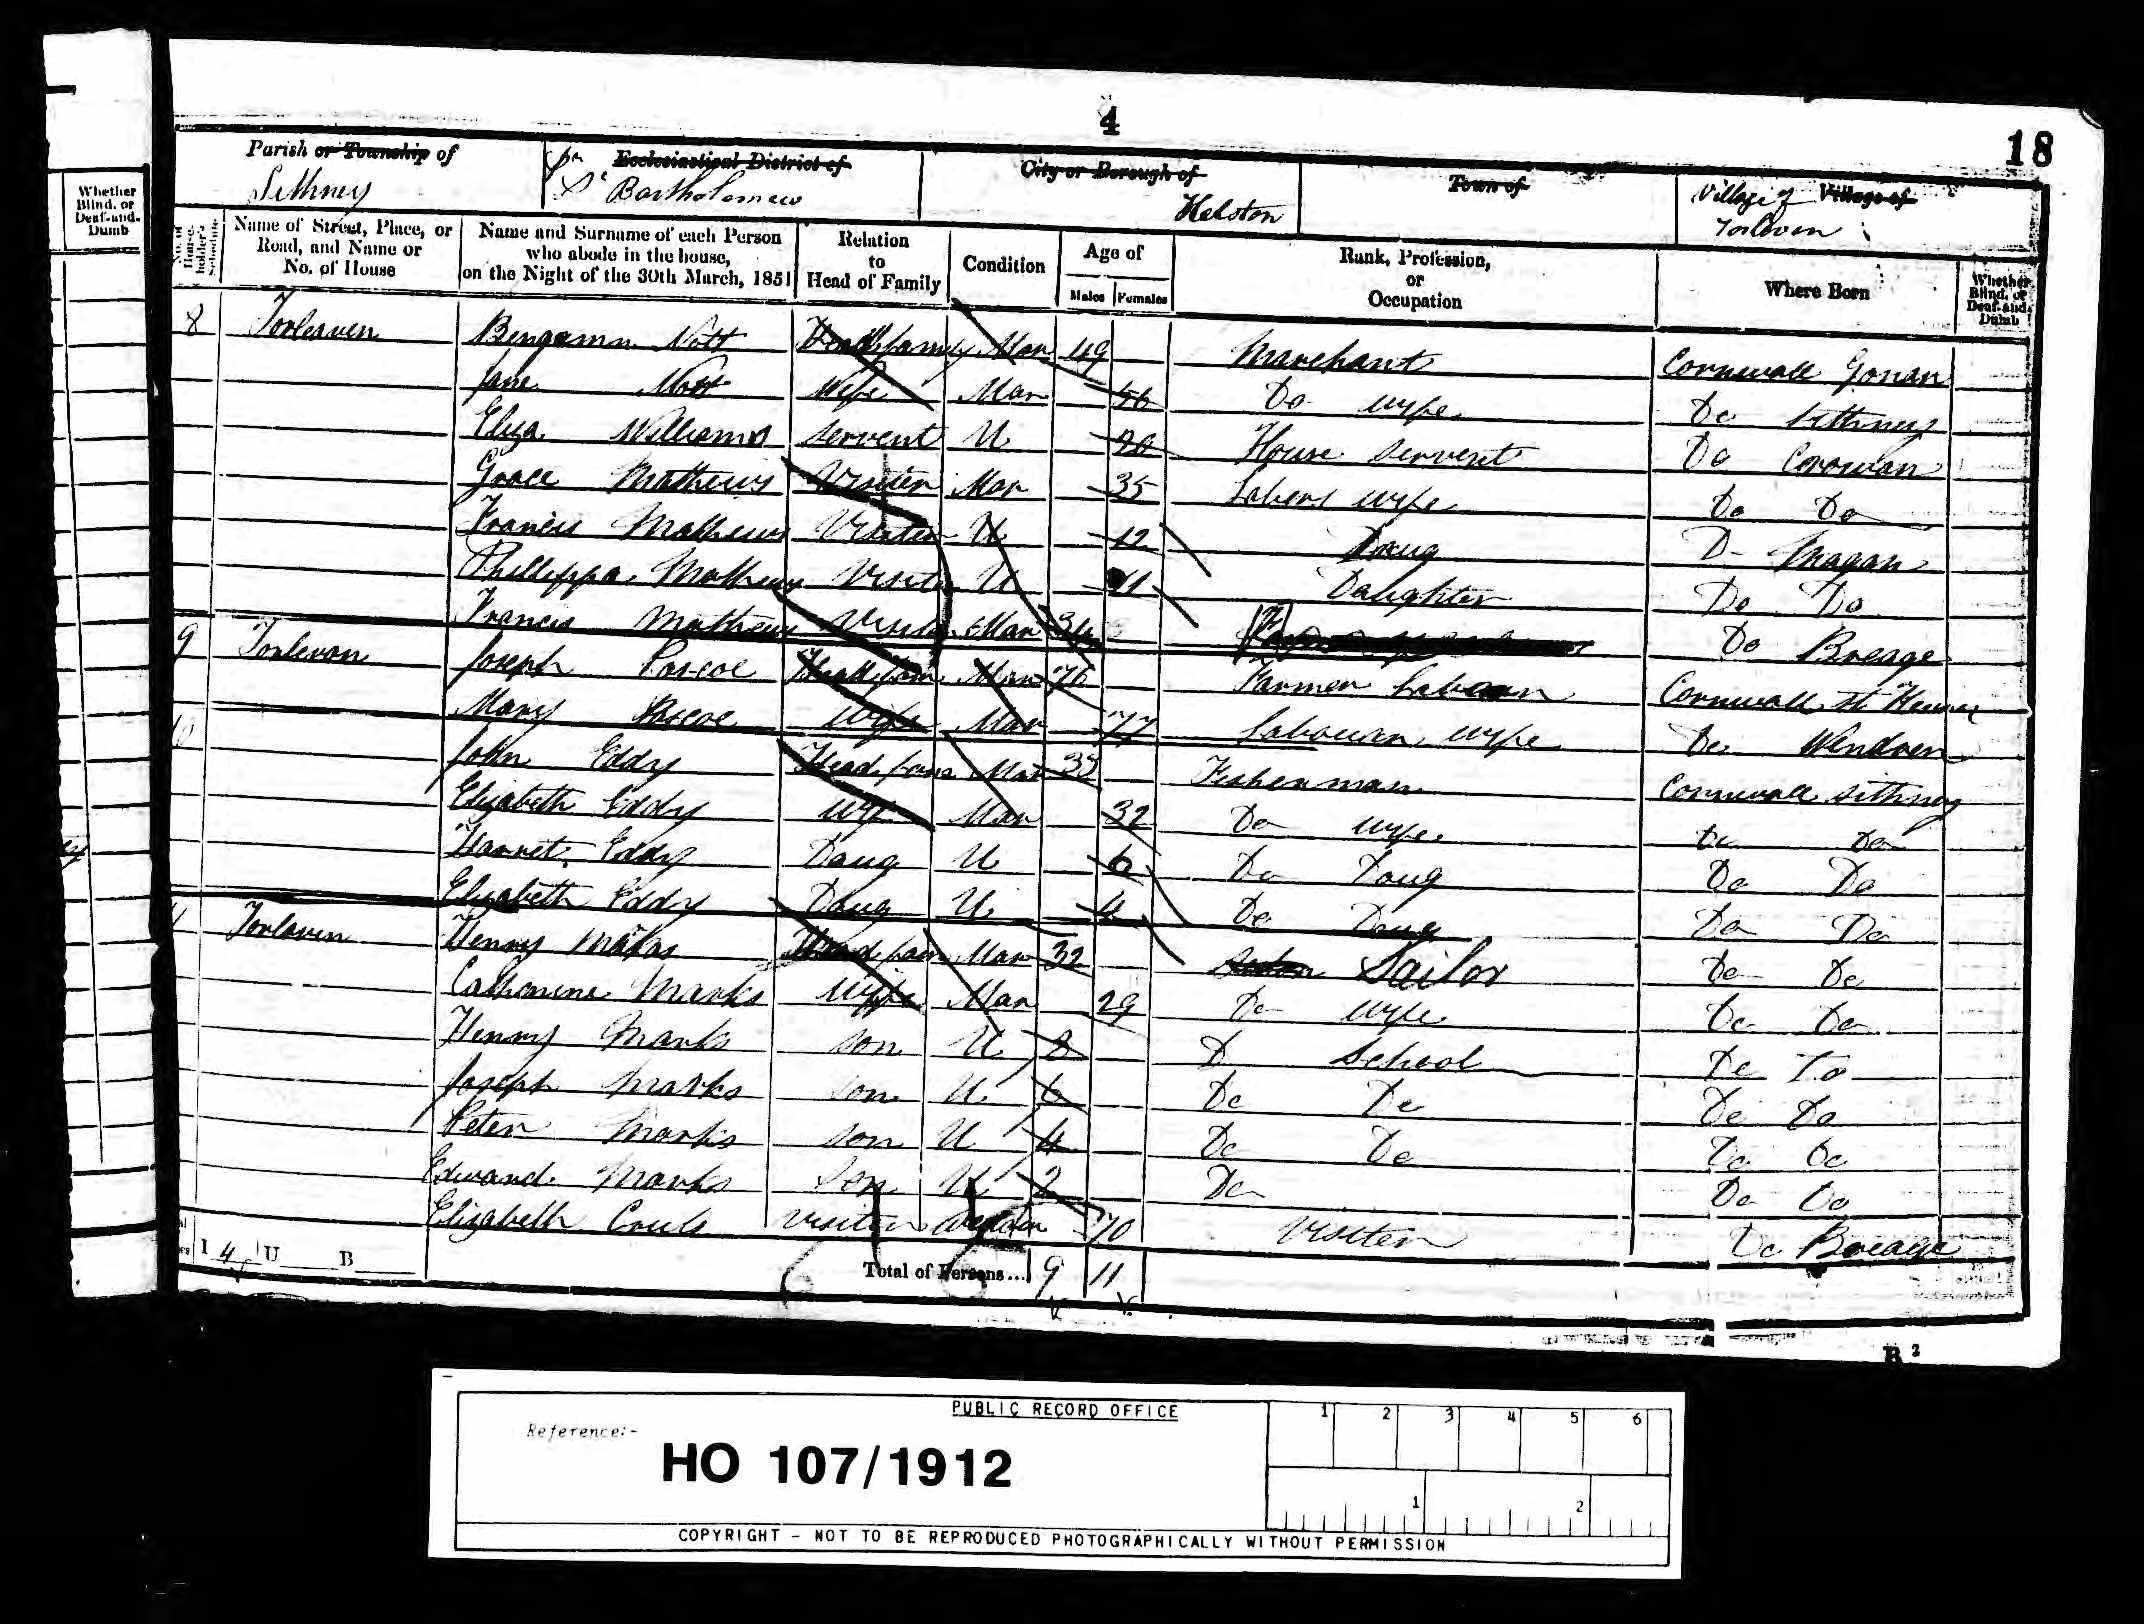 4
18
Parish or Township of
Sithney
Ecclesiastical District of
St Bartholomew
City or Borough of
Helston
Town of
Village of Village of
Torleven
Whether Blind, or Deaf-and-Dumb
No. of House-holder's Schedule
Name of Street, Place, or Road, and Name or No. of House
Name and Surname of each Person who abode in the house, on the Night of the 30th March, 1851
Relation to Head of Family
Condition
Age of
Males Females
Rank, Profession, or Occupation
Where Born
Whether Blind, or Deaf-and-Dumb
8 Torleaven Bengamn Nott Head family Mar 49 Marchant Cornwall Gonan
Jane Nott Wife Mar 56 Do wife Do Sithney
Eliza Williams Servent U 20 House Servent Do Crowan
Grace Mathews Visiter Mar 35 Labers wife Do Do
Francis Mathews Visiter U 12 Daug D Magan
Phillippa Mathews Visiter U 11 Daughter Do Do
Francis Mathews Visiter Mar 34 Do Breage
9 Torlevan Joseph Pascoe Head fam Mar 76 Farmer Cornwall St
Mary Pascoe Wife Mar 77 Labouar wife Do Wendren
10 John Eddy Head fam Mar 33 Fisherman Cornwall Sithney
Elizabeth Eddy Wif Mar 32 Do wife Do Do
Harriet Eddy Daug U 6 Do Daug Do Do
Elizabeth Eddy Daug U 4 Do Daug Do Do
11 Torlaven Henny Marks Head fam Mar 32 Sailor Do Do
Catherine Marks Wife Mar 29 Do wife Do Do
Henny Marks Son U 8 D School De Do
Joseph Marks Son U 6 Do Do Do Do
Peter Marks Son U 4 Do Do Do Do
Edward Marks Son U 2 Do Do Do
Elizabeth Visiter 70 Visiter Do Breage
I 4 U B
Total of Persons... 9 11
B 2
PUBLIC RECORD OFFICE
Reference:-
HO 107/1912
1 2 3 4 5 6
1 2
COPYRIGHT - NOT TO BE REPRODUCED PHOTOGRAPHICALLY WITHOUT PERMISSION